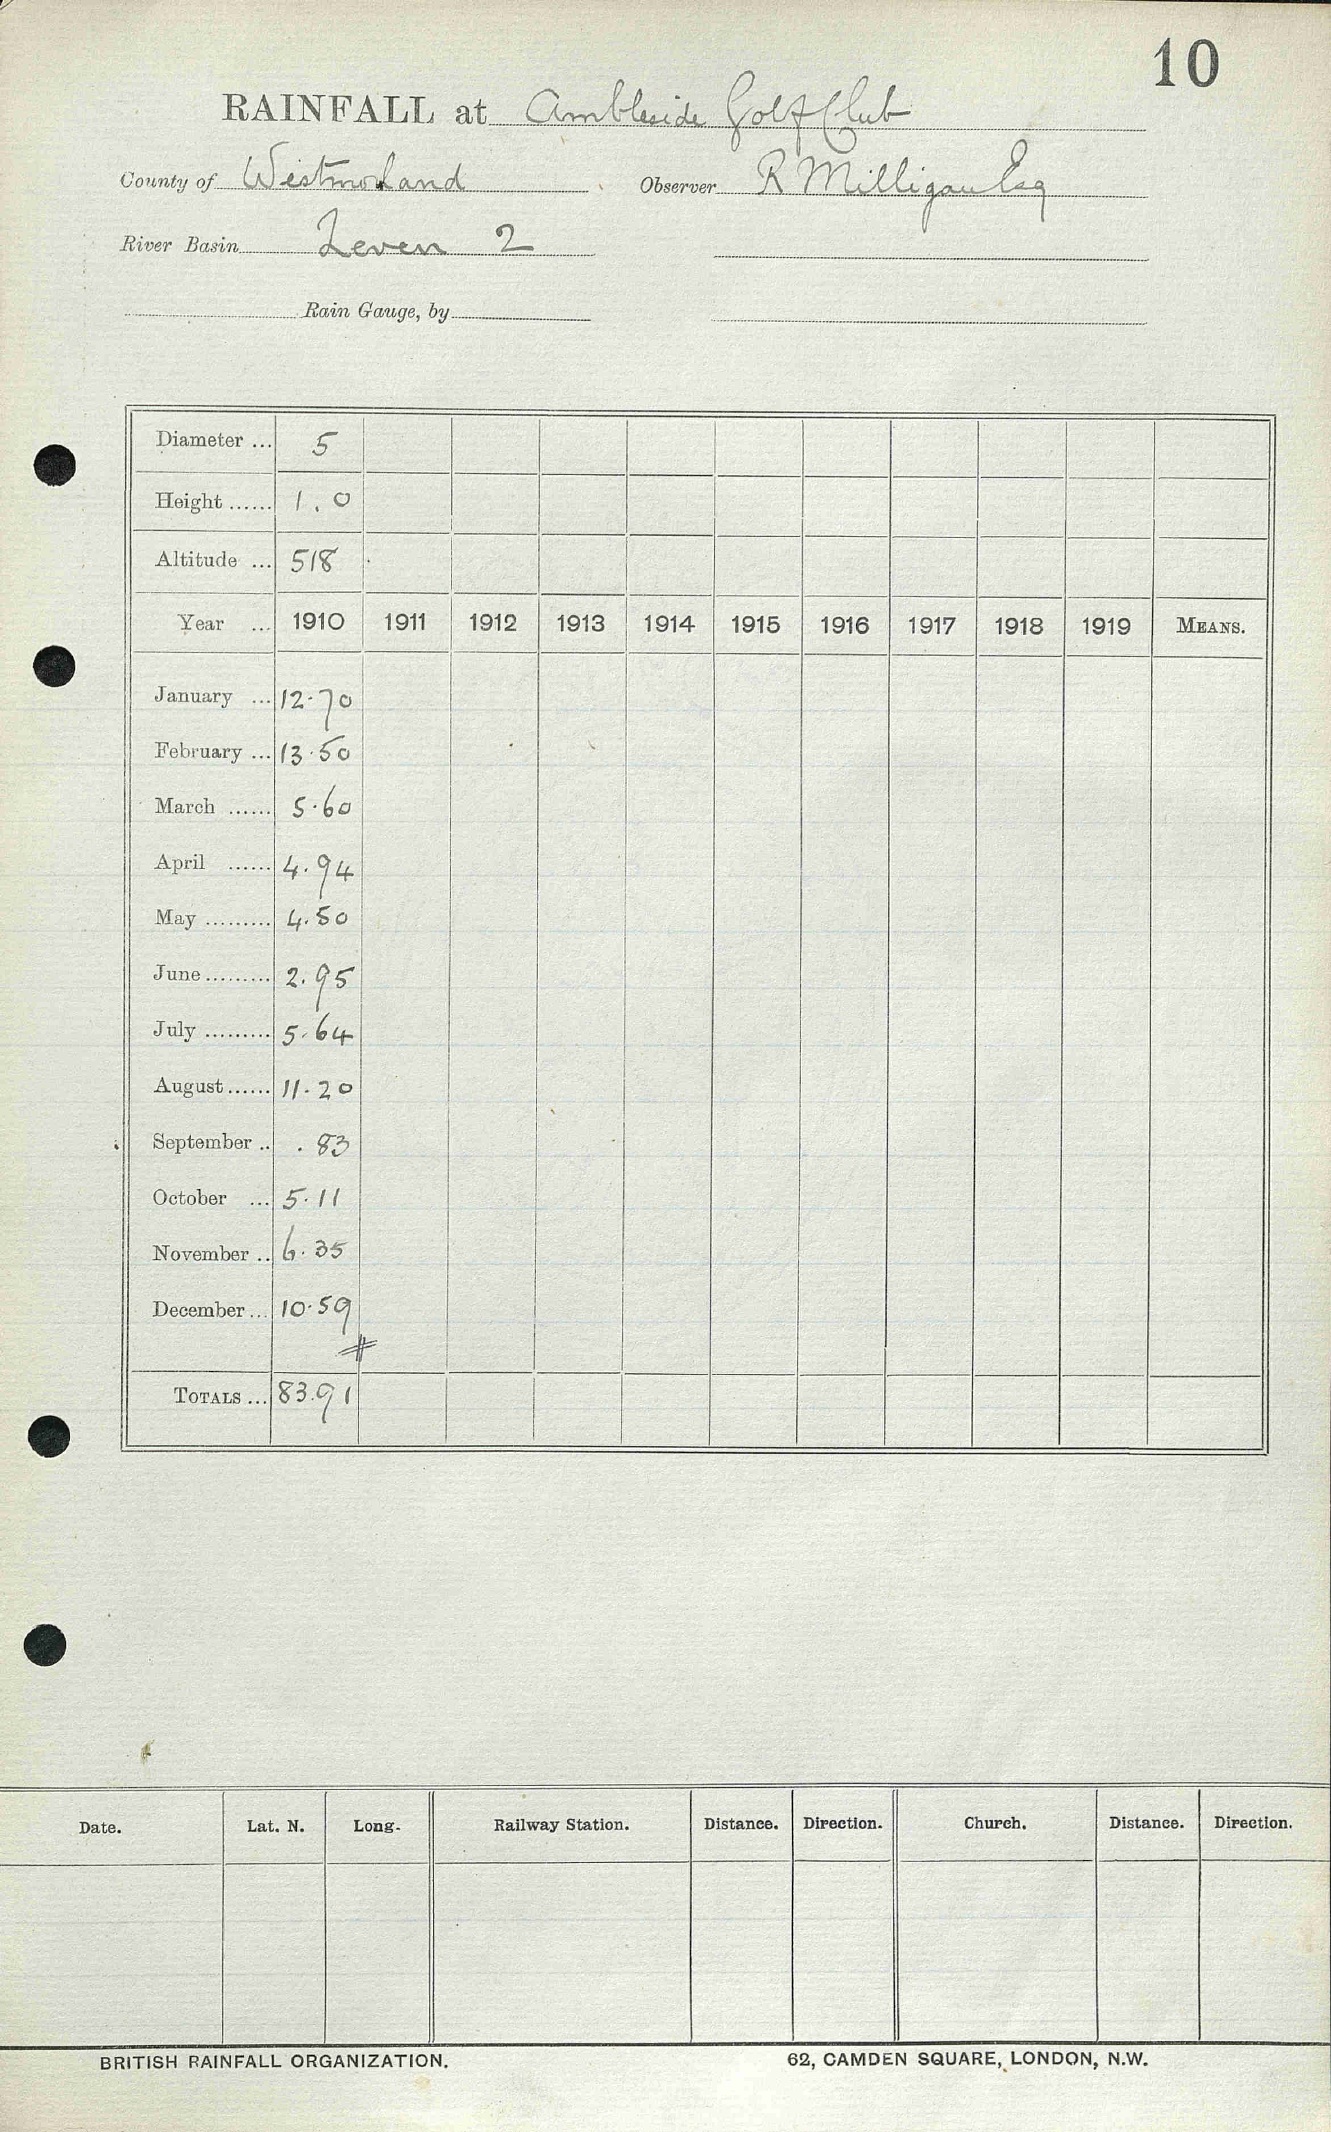 10
RAINFALL at Ambleside Golf Club
County of Westmorland Observer R Milligan Esq
River Basin Leven 2
Rain Gauge, by
Diameter ... 5
Height ...... 1.0
Altitude ... 518
Year ... 1910 1911 1912 1913 1914 1915 1916 1917 1918 1919 MEANS.
January ... 12.70
February ... 13.50
March ...... 5.60
April ...... 4.94
May ......... 4.50
June ......... 2.95
July ......... 5.64
August ...... 11.20
September .. .83
October ... 5.11
November .. 6.35
December ... 10.59
TOTALS ... 83.91
Date. Lat. N. Long. Railway Station. Distance. Direction. Church. Distance. Direction.
BRITISH RAINFALL ORGANIZATION. 62, CAMDEN SQUARE, LONDON, N.W.